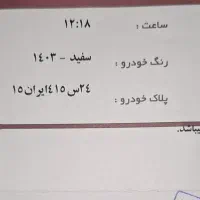 ساعت : ۱۲:۱۸
رنگ خودرو : سفید - ۱۴۰۳
پلاک خودرو : ۲۴س۴۱۵ایران۱۵
میباشد.